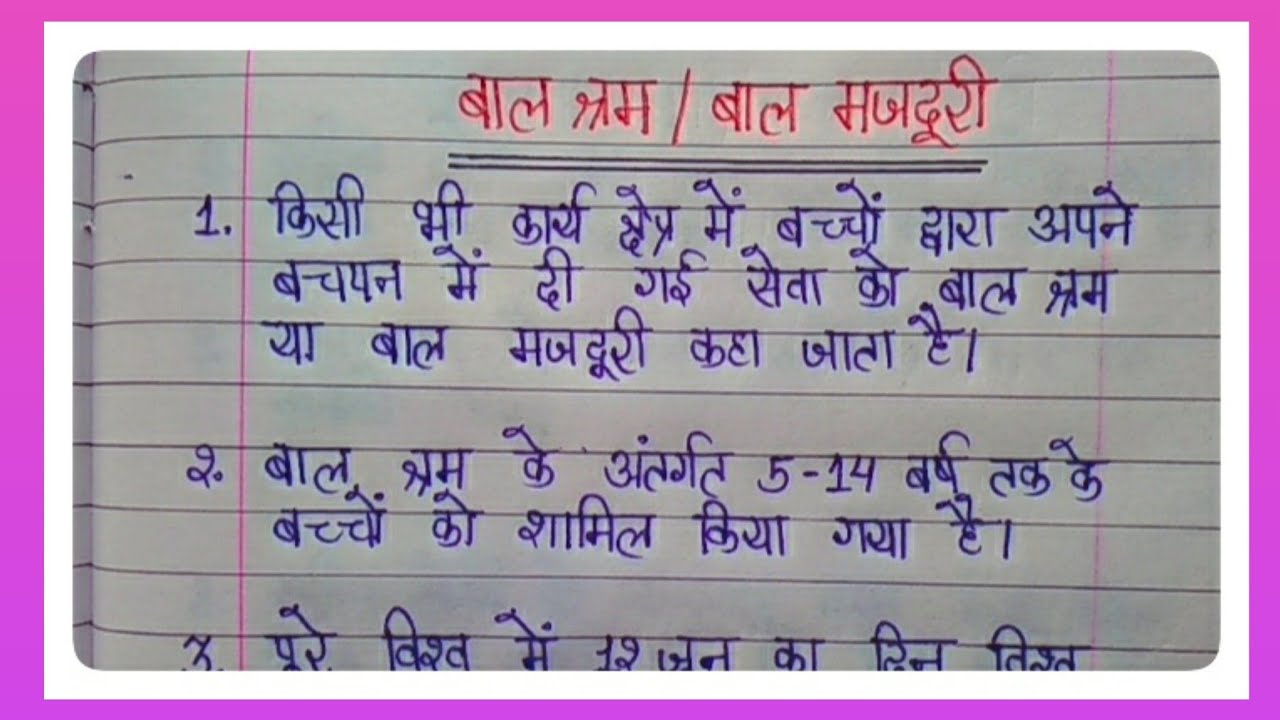 बाल श्रम / बाल मजदूरी
1. किसी भी कार्य क्षेत्र में बच्चों द्वारा अपने
बचपन में दी गई सेवा को बाल श्रम
या बाल मजदूरी कहा जाता है।
२. बाल श्रम के अंतर्गत 5-14 बर्ष तक के
बच्चों को शामिल किया गया है।
3. पूरे विश्व में 12 जून का दिन विश्व